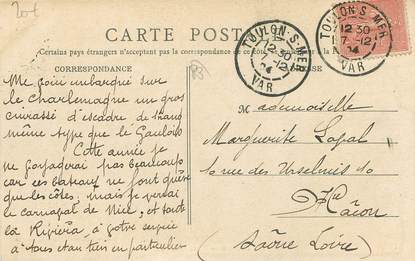 20f
CARTE POSTALE
TOULON-S-MER
12 30
-12
04
VAR
TOULON-S-MER
12 30
-12
04
VAR
Certains pays étrangers n'acceptant pas la correspondance de ce côté
CORRESPONDANCE
ADRESSE
83
Me voici embarqué sur
le Charlemagne un gros
cuirassé d'escadre, du
même type que le Gaulois
Cette année je
ne voyagerai pas beaucoup
car ces bateaux ne font guère
que les côtes, mais je verrai
le carnaval de Nice, et toute
la Riviéra, à votre service
à tous et au tien en particulier
Mademoiselle
Marguerite
10 rue des Ursulines 10
Mâcon
(Saône Loire)